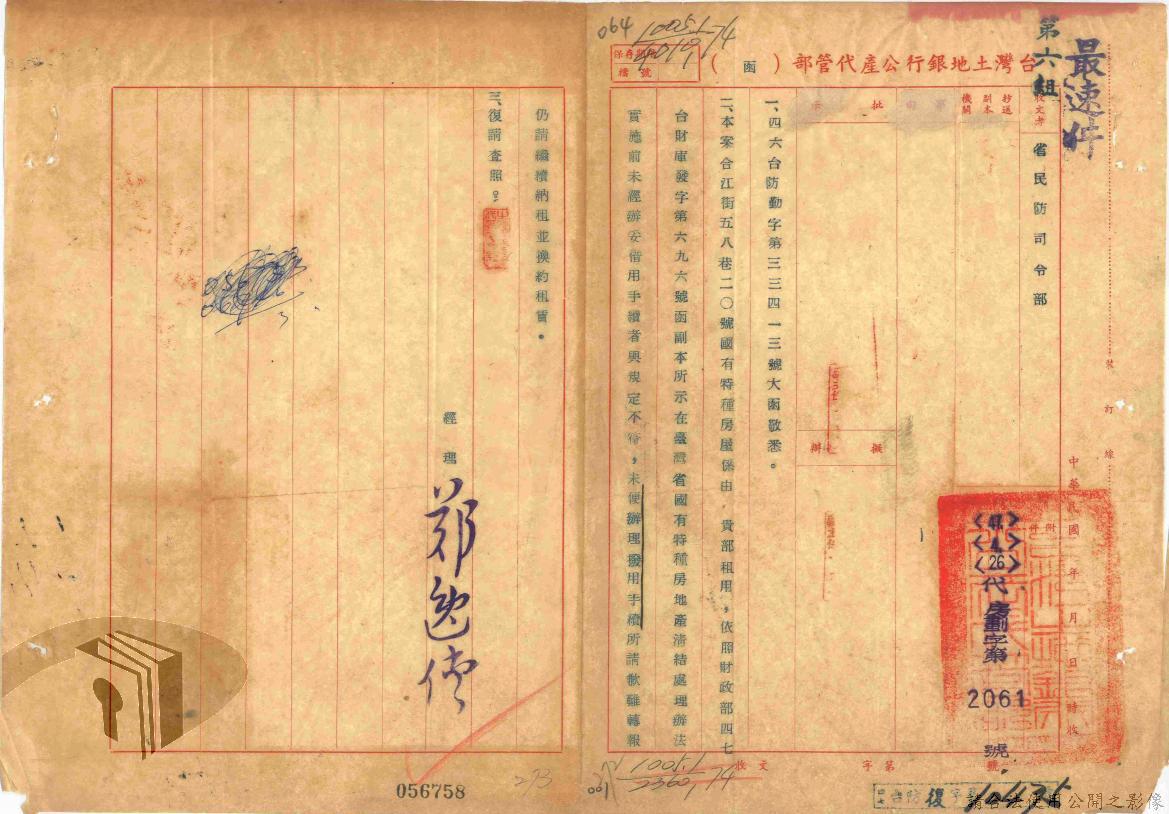 最速件
第六組
台灣土地銀行公產代管部（函）
保存期限
檔號
064
1005.1
74
收文者
省民防司令部
抄送
副本
機關
批示
擬辦
裝訂線
中華民國 年 月 日 時收
附件
<47>
<4>
<26>
代房劃字第
2061
號
一、四六台防勤字第三三四一三號大函敬悉。
二、本案合江街五八巷二〇號國有特種房屋係由 貴部租用，依照財政部四七
台財庫發字第六九六號函副本所示在臺灣省國有特種房地產清結處理辦法
實施前未經辦妥借用手續者與規定不符，未便辦理撥用手續所請歉難轉報
仍請繼續納租並換約租賃。
三、復請查照。
經理
鄭逸僑
收文 字第 號
1005.1
2360,74
056758
273
請合法使用公開之影像